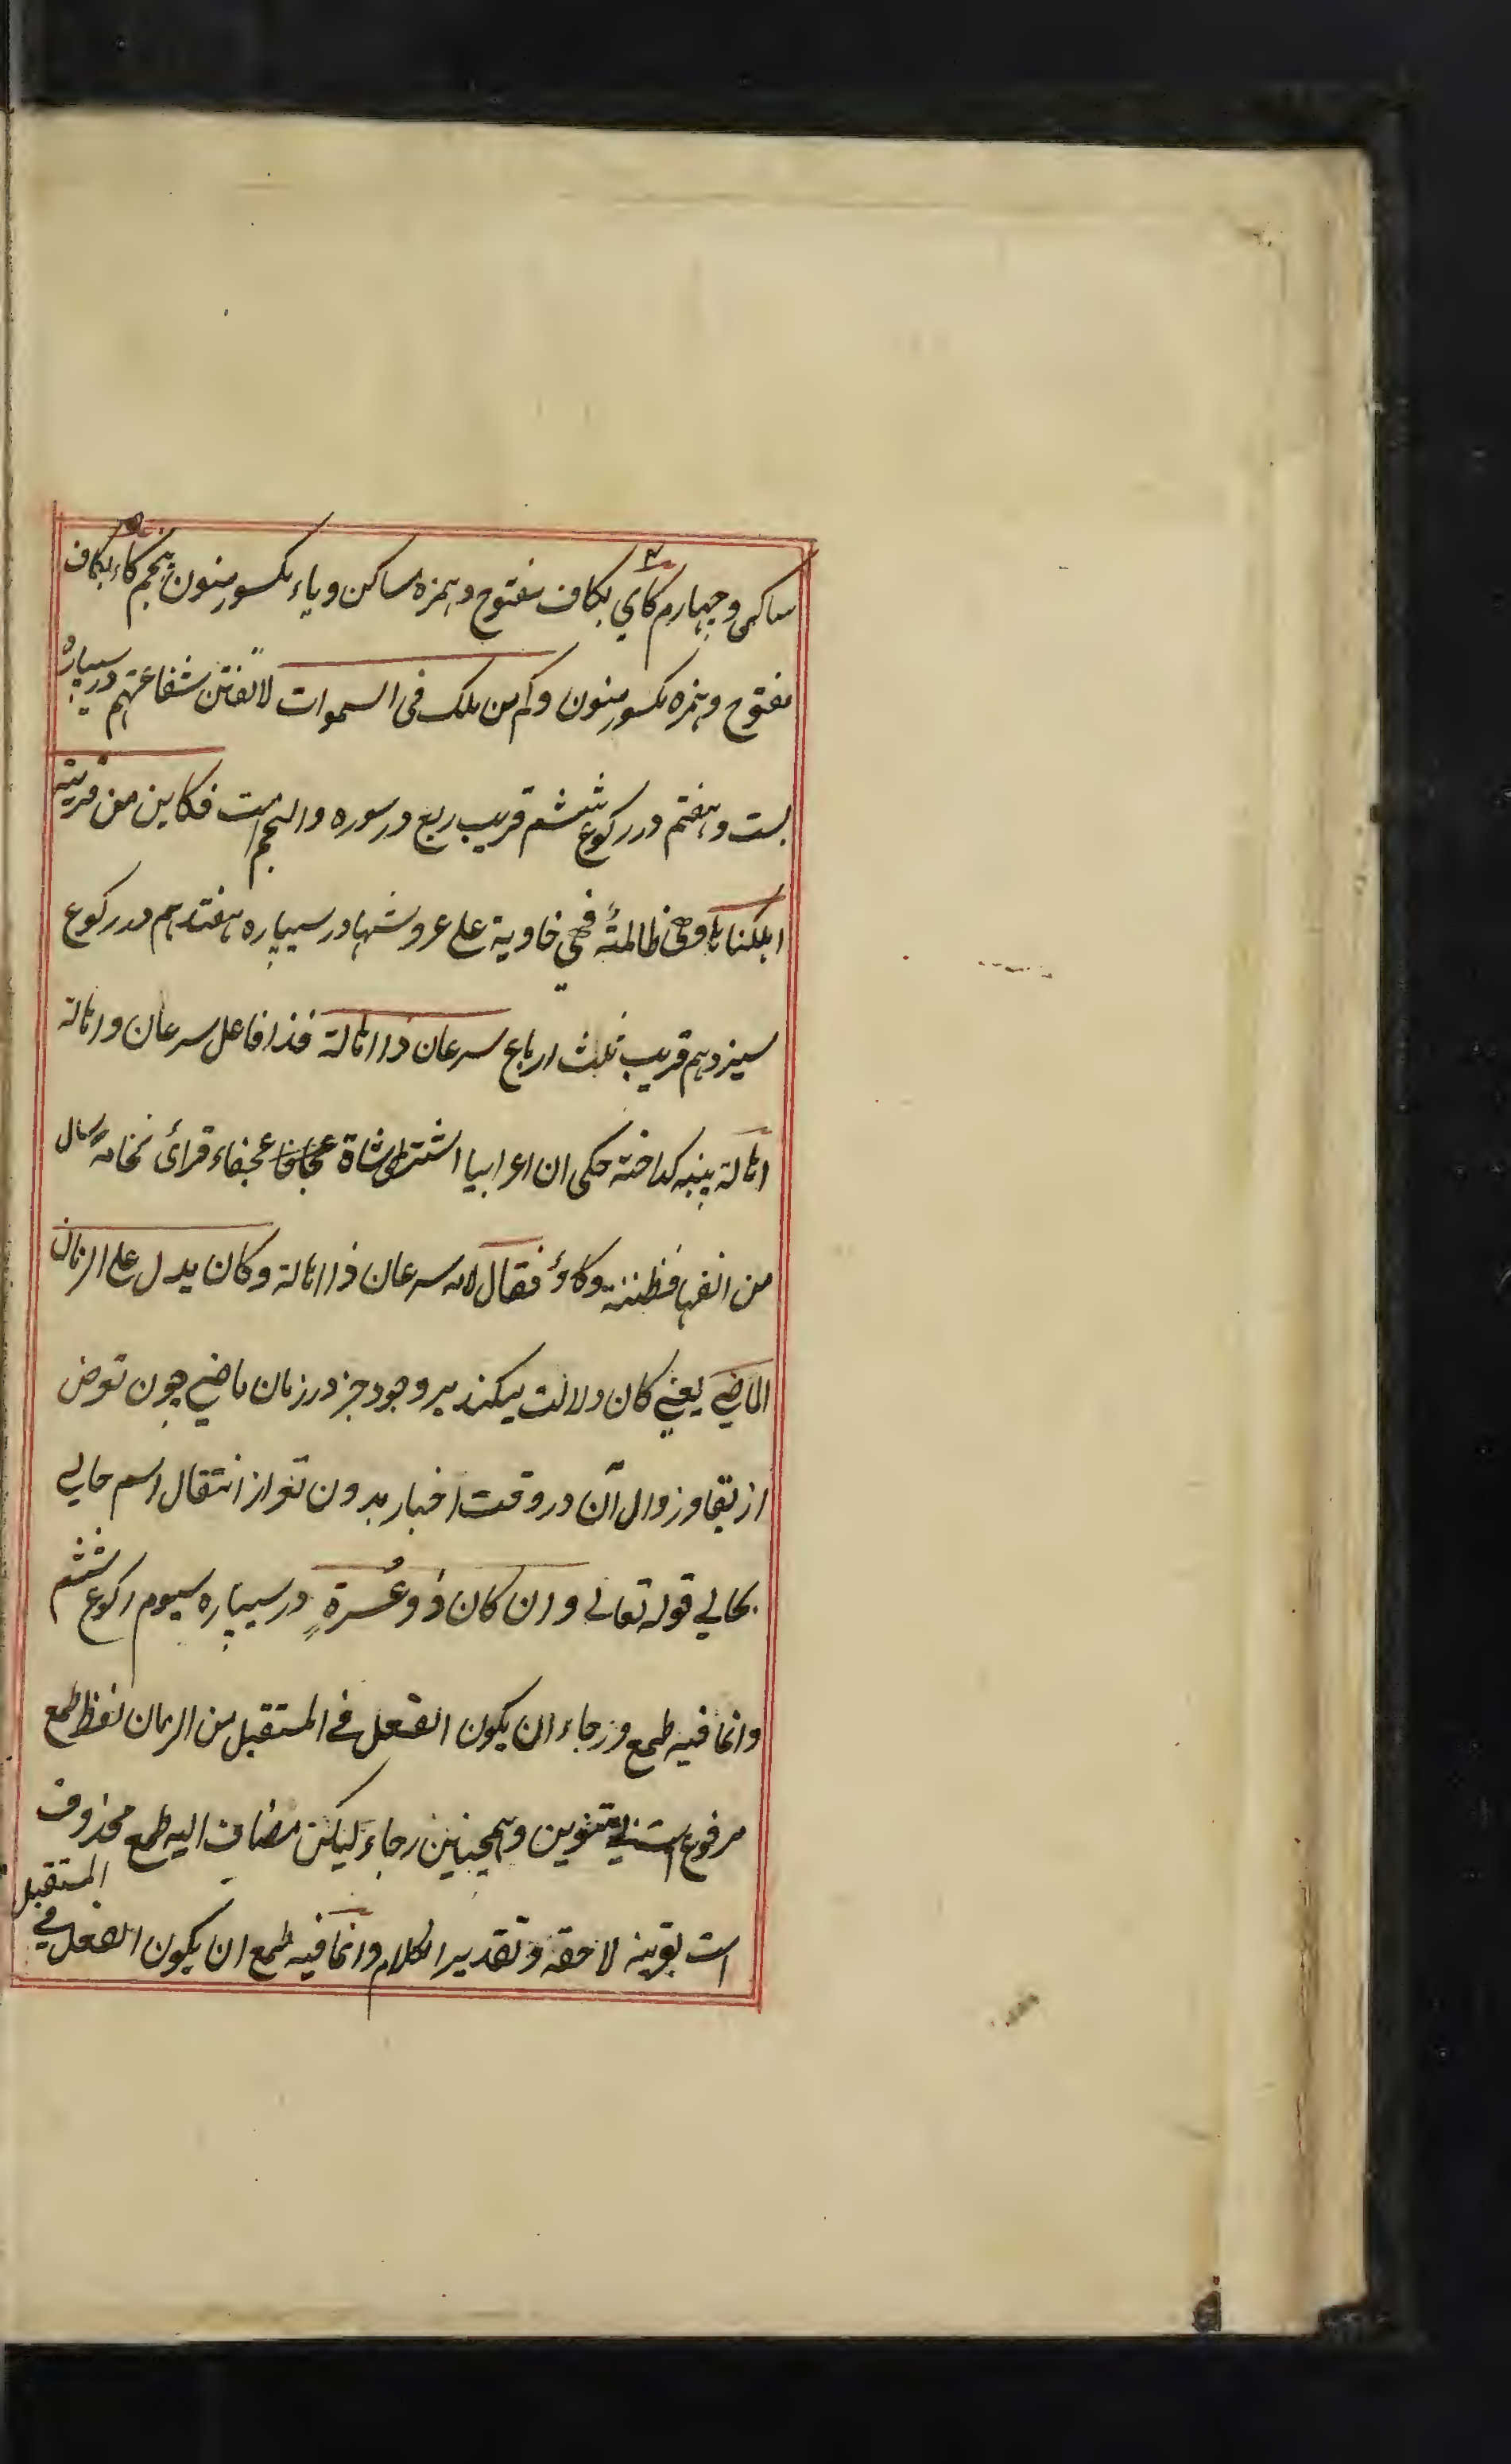 ساکن و چهارم کأي بکاف مفتوح و همزه ساکن و یاء مکسور منون پنجم کاء بکاف
مفتوح و همزه مکسور منون وکم من ملک فی السموات لا تغن شفاعتهم در سیپاره
بست و هفتم در رکوع ششم قریب ربع در سوره والنجم است فکاین من قریة
اهلکناها وهی ظالمة فهي خاوية علی عروشها در سیپاره هفتدهم در رکوع
سیزدهم قریب ثلث ارباع سرعان ذا اهالة فذا فاعل سرعان و اهالة
اهالة پنبه کداخته حکی ان اعرابیا اشتری شاة عجفاء فرأی نخامة سال
من انفها فظننه وکاؤ فقال لامه سرعان ذا اهالة وکان یدل علی الزمان
الماضی یعنی کان دلالت میکند بر وجود جز در زمان ماضي چون تعرض
از بقا و زوال آن در وقت اخبار بدون تغر از انتقال اسم حالی
بحالي قوله تعالی وان کان ذو عُسرةٍ در سیپاره سیوم رکوع ششم
وانما فیه طمع و رجاء ان یکون الفعل في المستقبل من الزمان لفظ طمع
مرفوع است بي تنوین و همچنین رجاء لیکن مضاف الیه طمع محذوف
است بقرینه لاحقه و تقدیر الکلام وانما فیه طمع ان یکون الفعل في المستقبل